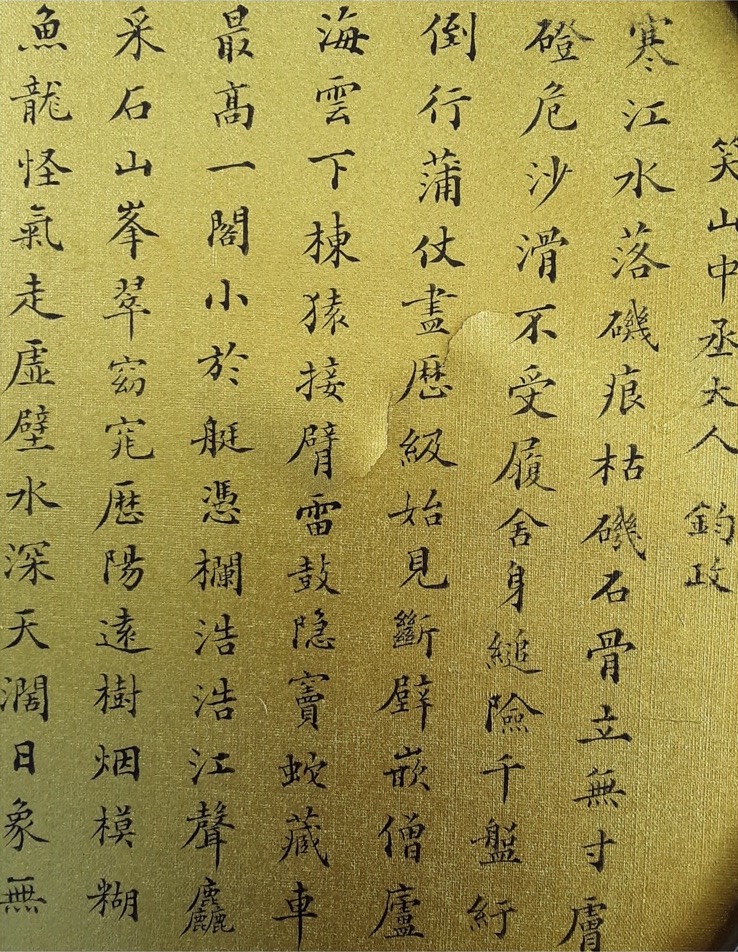 笑山中丞大人 鈞政
寒江水落磯痕枯磯石骨立無寸膚
磴危沙滑不受履舍身縋險千盤紆
倒行蒲伏盡歷級始見斷壁嵌僧廬
海雲下棟猿接臂雷鼓隐竇蛟藏車
最高一閣小於艇憑欄浩浩江聲麤
采石山峯翠窈窕歷陽遠樹烟模糊
魚龍怪氣走虛壁水深天濶日象無